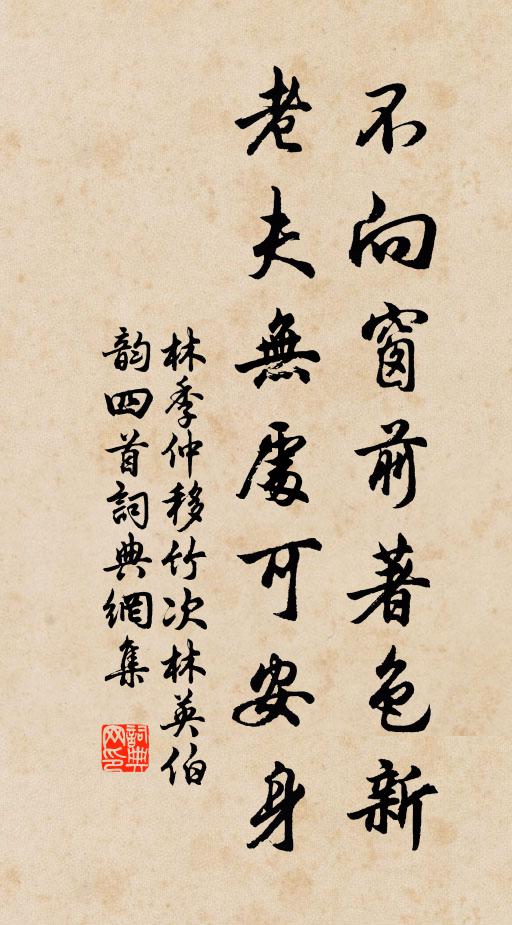 不向窗前著色新
老夫無處可安身
林季仲移竹次林英伯
韵四首詞典網集
詞典网印